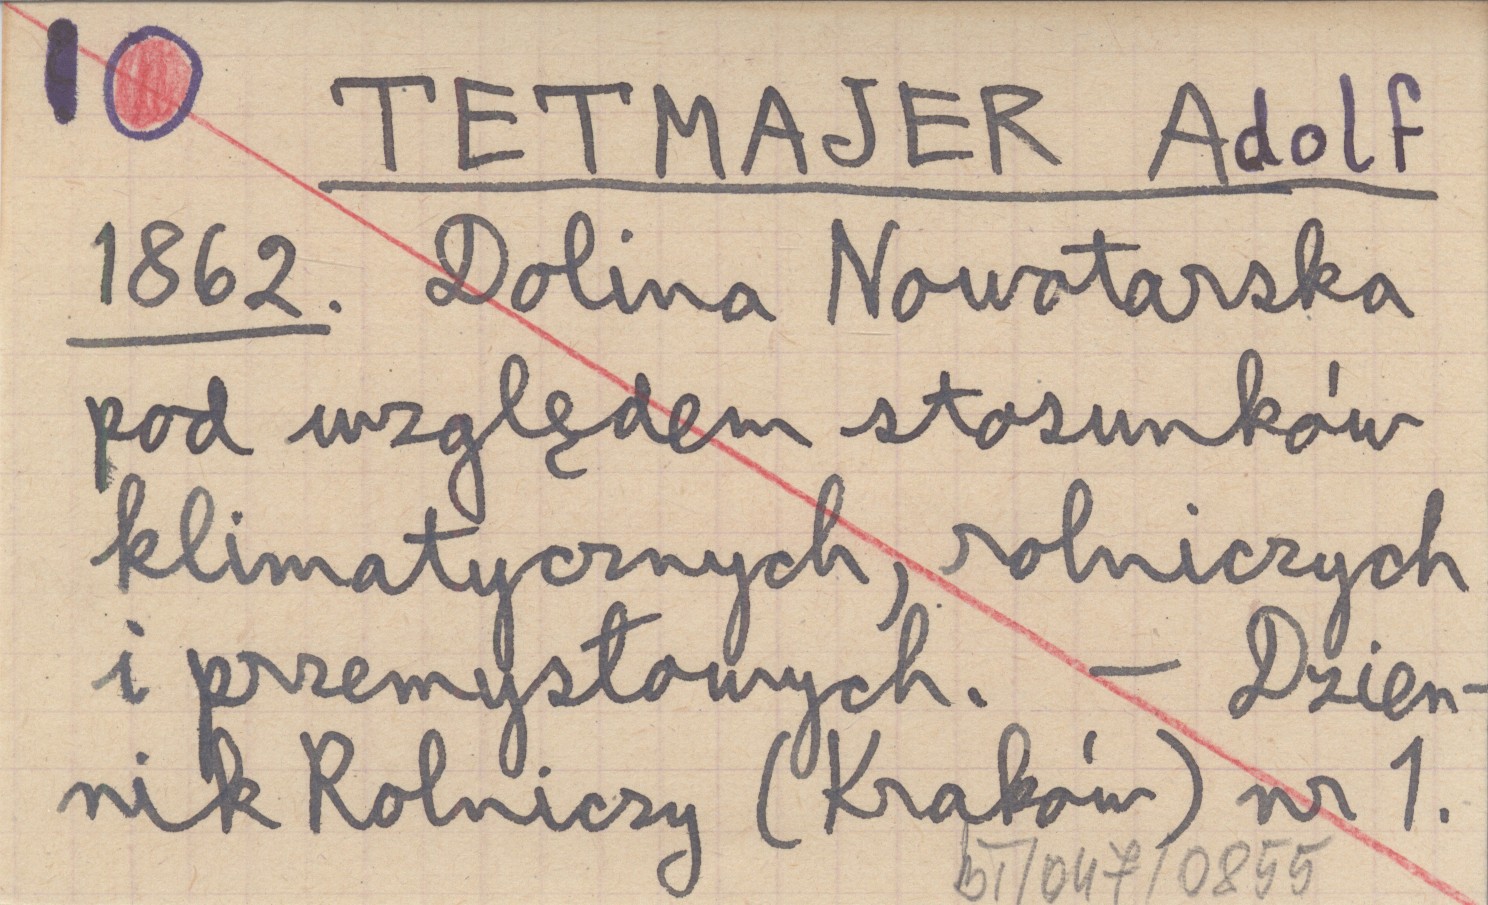 10
TETMAJER Adolf
1862. Dolina Nowotarska
pod względem stosunków
klimatycznych, rolniczych
i przemysłowych. – Dzien-
nik Rolniczy (Kraków) nr 1.
BT/047/0855